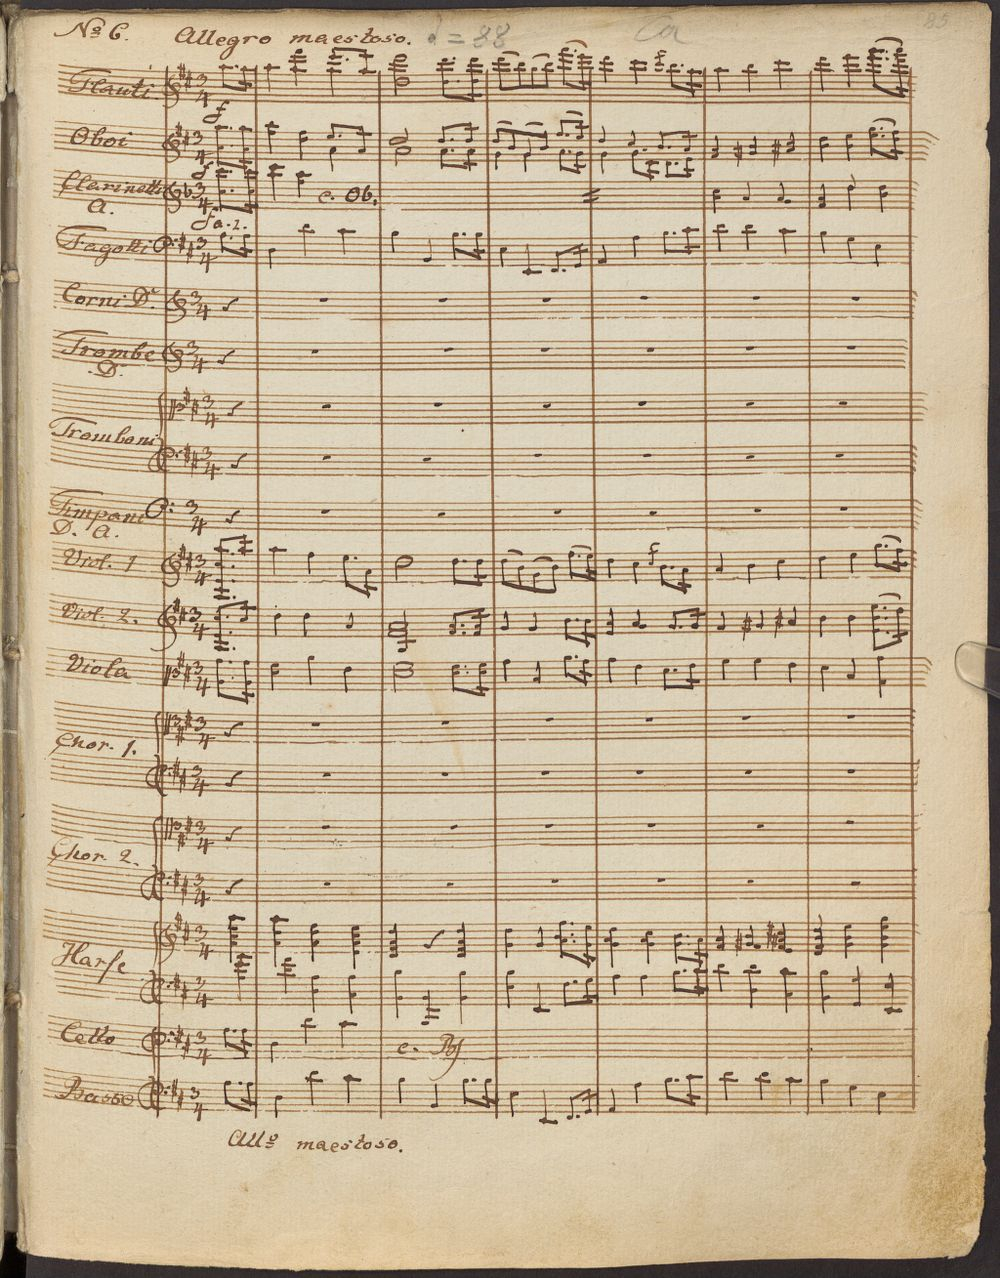 No. 6. Allegro maestoso. ♩ = 88
85
Flauti
f
Oboi
Clarinetti
A.
c. Ob.
a. 2.
Fagotti
Corni D.
Trombe
D.
Tromboni
Timpani
D. A.
Viol. 1
f
Viol. 2.
Viola
Chor. 1.
Chor. 2.
Harfe
Cello
c. Bß
Basso
Allo maestoso.